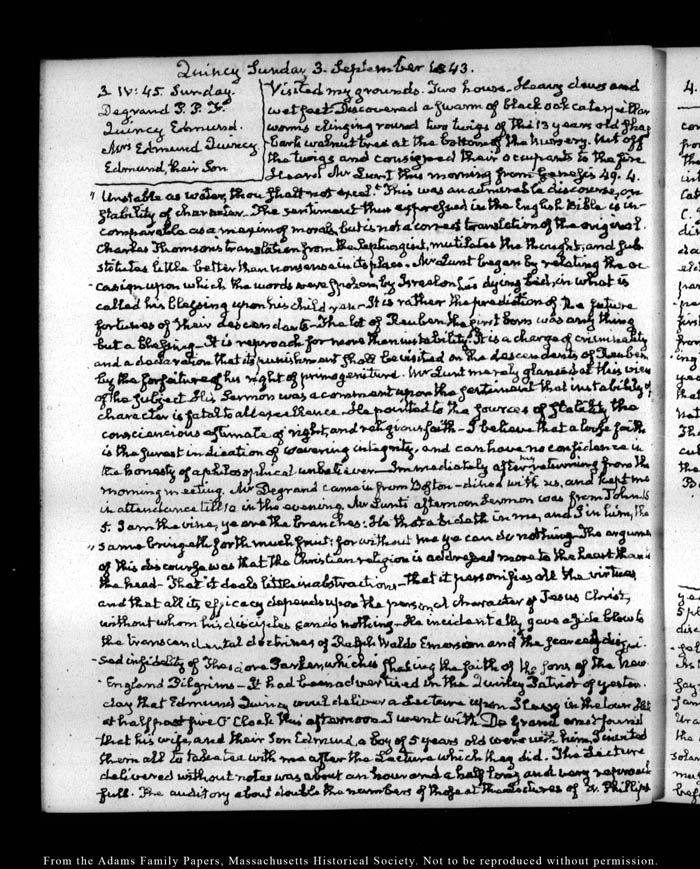 Quincy Sunday 3. September 1843.
3. IV:45. Sunday.
Degrand P. P. F.
Quincy Edmund.
Mrs Edmund Quincy
Edmund, their Son
Visited my grounds. Two hours. Heavy dews and
wet feet. Discovered a swarm of black oak caterpillar
worms clinging round two twigs of the 13 years old shag
bark walnut tree at the bottom of the nursery. Cut off
the twigs and consigned their occupants to the fire
Heard Mr Lunt this morning from Genesis 49. 4.
" Unstable as water, thou shalt not excel." This was an admirable discourse, on
stability of character. The sentiment thus expressed in the English Bible is in-
comparable as a maxim of morals, but is not a correct translation of the original.
Charles Thomson's translation from the Septuagint, mutilates the thought, and sub-
stitutes little better than nonsense in its place. Mr Lunt began by relating the oc-
casion upon which the words were spoken by Israel on his dying bed, in what is
called his blessing upon his children. It is rather the prediction of the future
fortunes of their descendants. The lot of Reuben the first born was any thing
but a blessing. It is reproach for more than instability. It is a charge of criminality
and a declaration that its punishment shall be visited on the descendants of Reuben
by the forfeiture of his right of primogeniture. Mr Lunt merely glanced at this view
of the subject. His Sermon was a comment upon the sentiment that instability of
character is fatal to all excellence. He pointed to the sources of stability, the
conscientious estimate of right, and religious faith - I believe that a large faith
is the surest indication of wavering integrity, and can have no confidence in
the honesty of a philosophical unbeliever. Immediately after my returning from the
morning meeting, Mr Degrand came in from Boston - dined with us, and kept me
in attendance till 10 in the evening. Mr Lunt's afternoon Sermon was from John 15.
5. I am the vine, ye are the branches: He that abideth in me, and I in him, the
" same bringeth forth much fruit: for without me ye can do nothing. The argument
of this discourse was that the Christian religion is addressed more to the heart than to
the head - That it deals little in abstractions - that it personifies all the virtues
and that all its efficacy depends upon the personal character of Jesus Christ,
without whom his disciples can do nothing. He incidentally gave a side blow to
the transcendental doctrines of Ralph Waldo Emerson and the scarcely disgui-
sed infidelity of Theodore Parker, which is shaking the faith of the sons of the New-
England Pilgrims - It had been advertised in the Quincy Patriot of yester-
day that Edmund Quincy would deliver a Lecture upon Slavery in the
at half past five O'Clock this afternoon. I went with De Grand and found
that his wife, and their Son Edmund, a boy of 5 years old were with him. I invited
them all to take tea with me after the Lecture which they did. The Lecture
delivered without notes was about an hour and a half long and very
full. The auditory about double the numbers of those at the Lectures of Phillips
4.
From the Adams Family Papers, Massachusetts Historical Society. Not to be reproduced without permission.